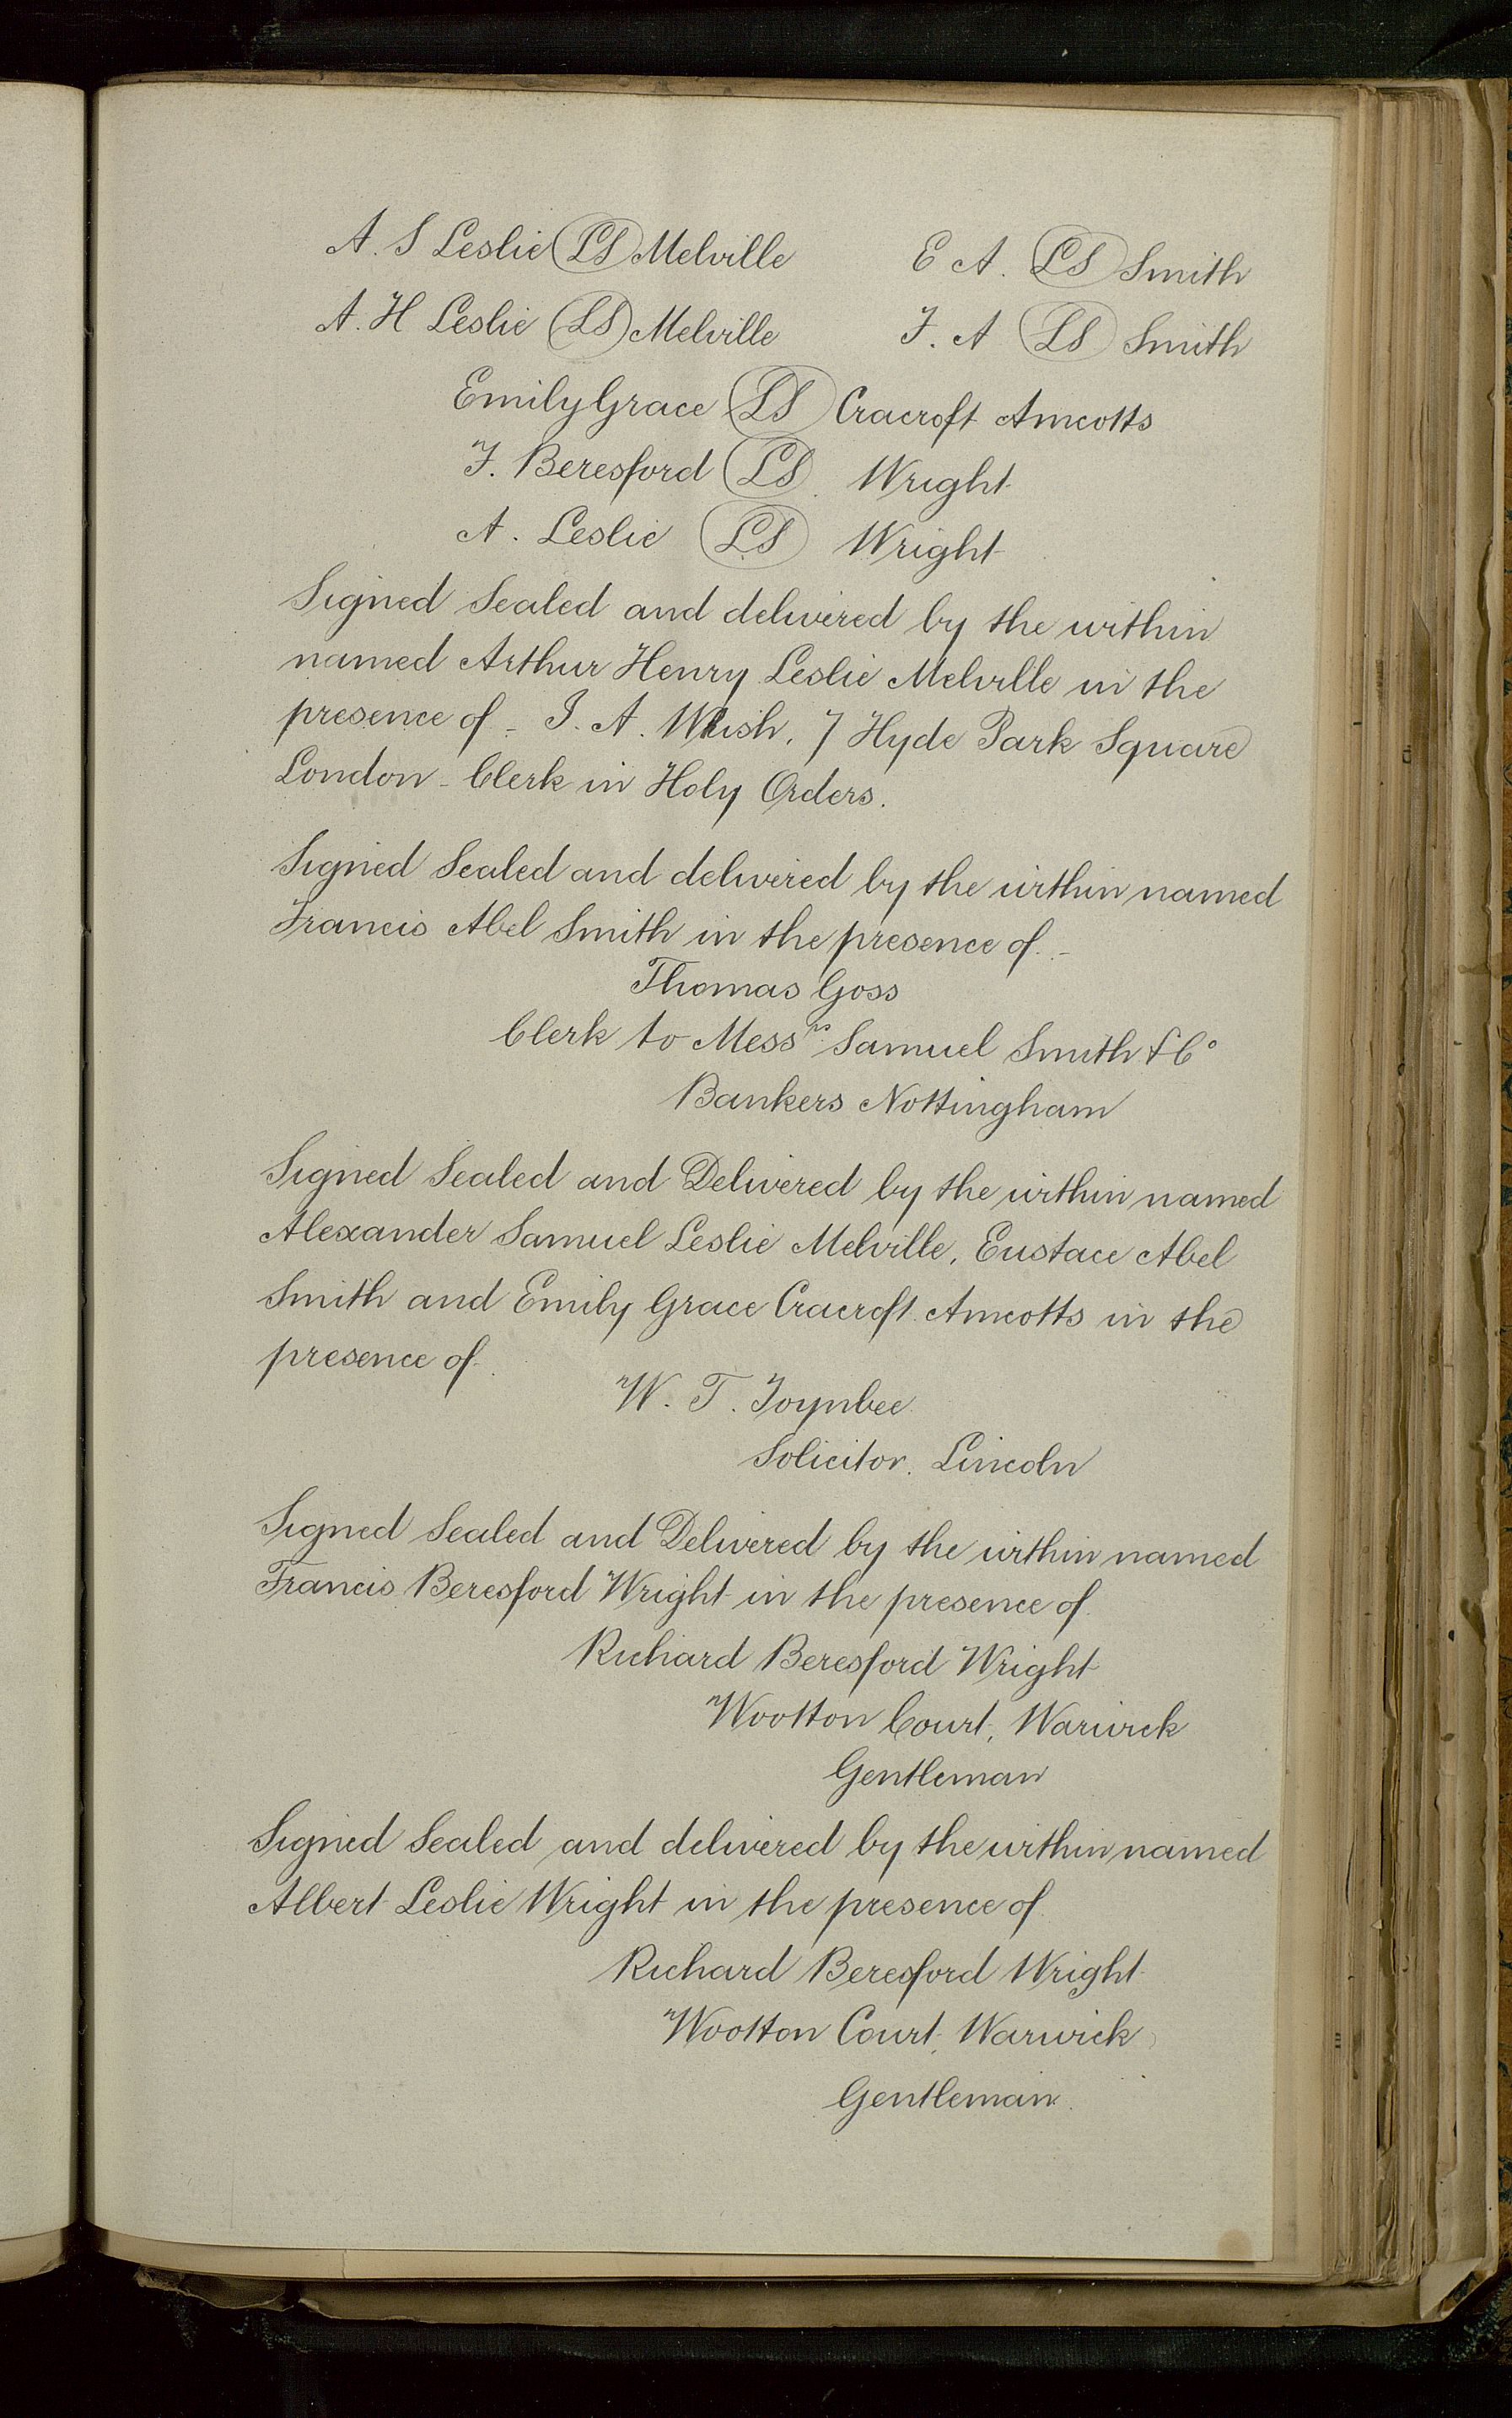 A. S Leslie LS Melville E A. LS Smith
A. H Leslie LS Melville F. A LS Smith
Emily Grace LS Cracroft Amcotts
F. Beresford LS Wright
A. Leslie LS Wright
Signed Sealed and delivered by the within
named Arthur Henry Leslie Melville in the
presence of - I. A. 7 Hyde Park Square
London - Clerk in Holy Orders.
Signed Sealed and delivered by the within named
Francis Abel Smith in the presence of. -
Thomas Goss
Clerk to Messrs Samuel Smith & Co
Bankers Nottingham
Signed Sealed and Delivered by the within named
Alexander Samuel Leslie Melville, Eustace Abel
Smith and Emily Grace Cracroft Amcotts in the
presence of.
W. T. Toynbee
Solicitor. Lincoln
Signed Sealed and Delivered by the within named
Francis Beresford Wright in the presence of.
Richard Beresford Wright
Wootton Court, Warwick
Gentleman
Signed Sealed and delivered by the within named
Albert Leslie Wright in the presence of
Richard Beresford Wright
Wootton Court, Warwick
Gentleman.